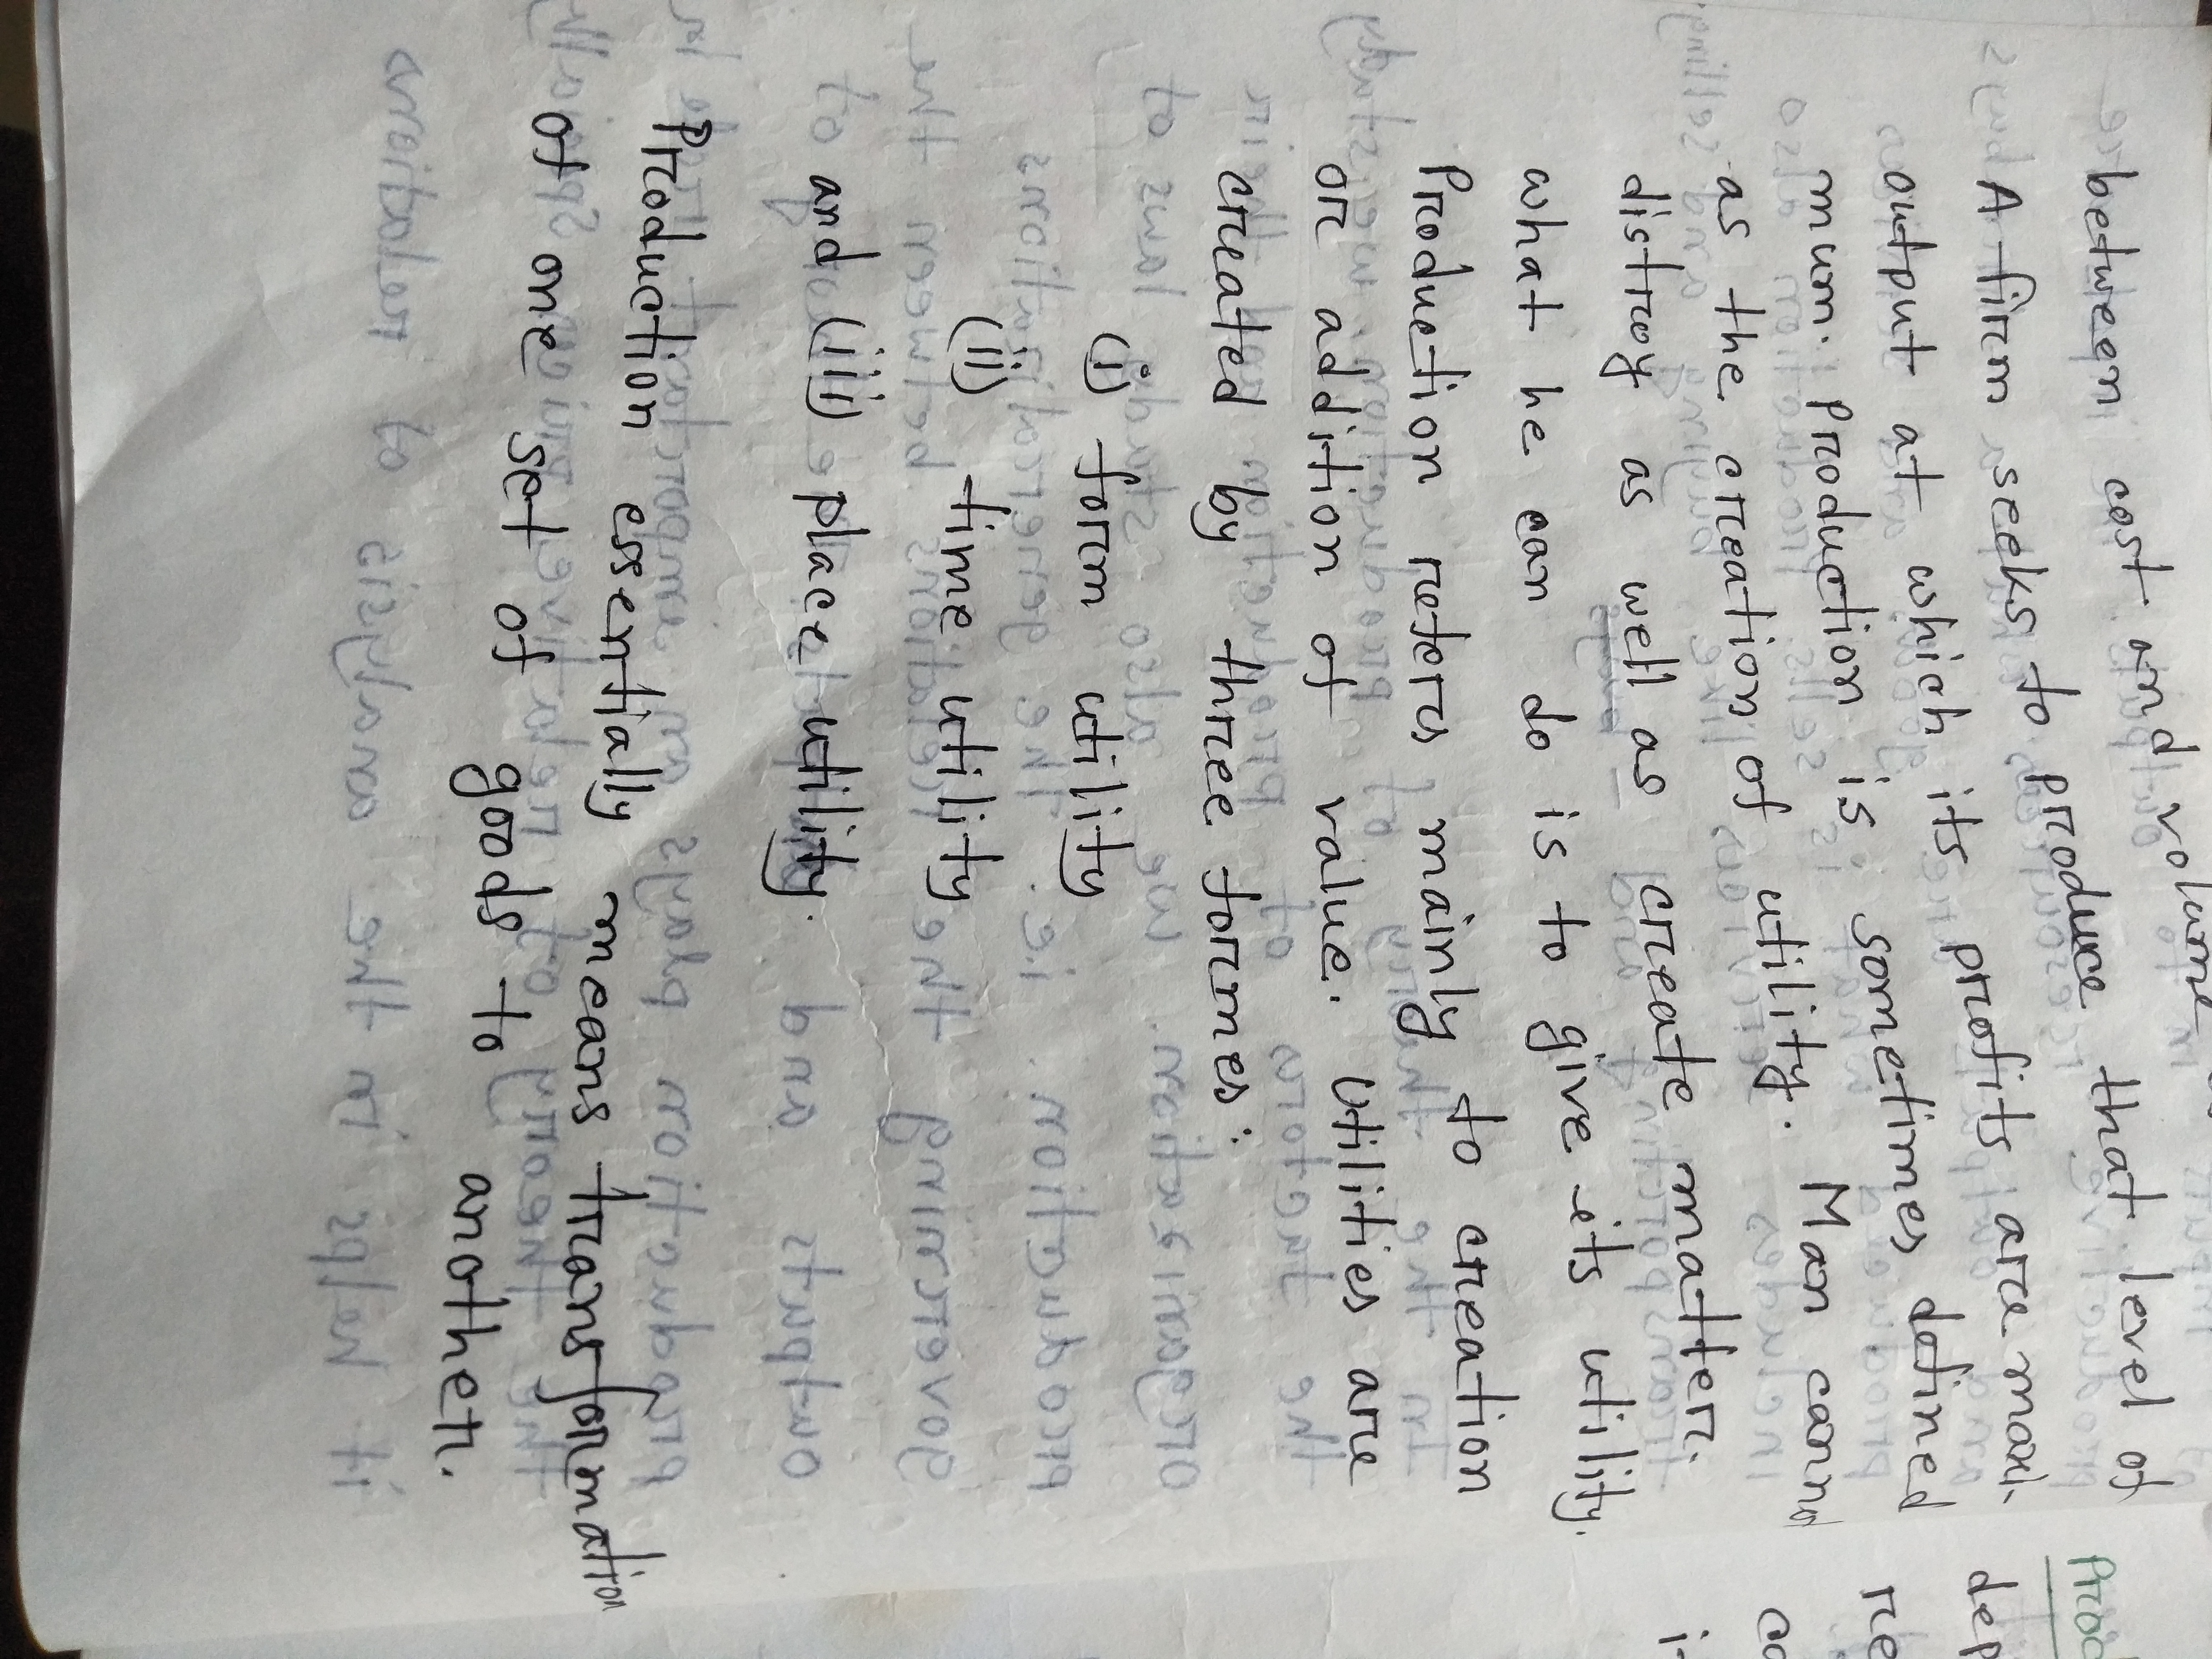 between cost and volume
A firm seeks to produce that level of
output at which its profits are maxi-
mum. production is sometimes defined
as the creation of utility. Man cannot
distroy as well as create matter.
what he can do is to give its utility.
Production refers mainly to creation
or addition of value. Utilities are
created by three formes:
(i) form utility
(ii) time utility
and (iii) place utility.
Production essentially means transformation
of one set of goods to
another.
Prod
dep
re
co
i